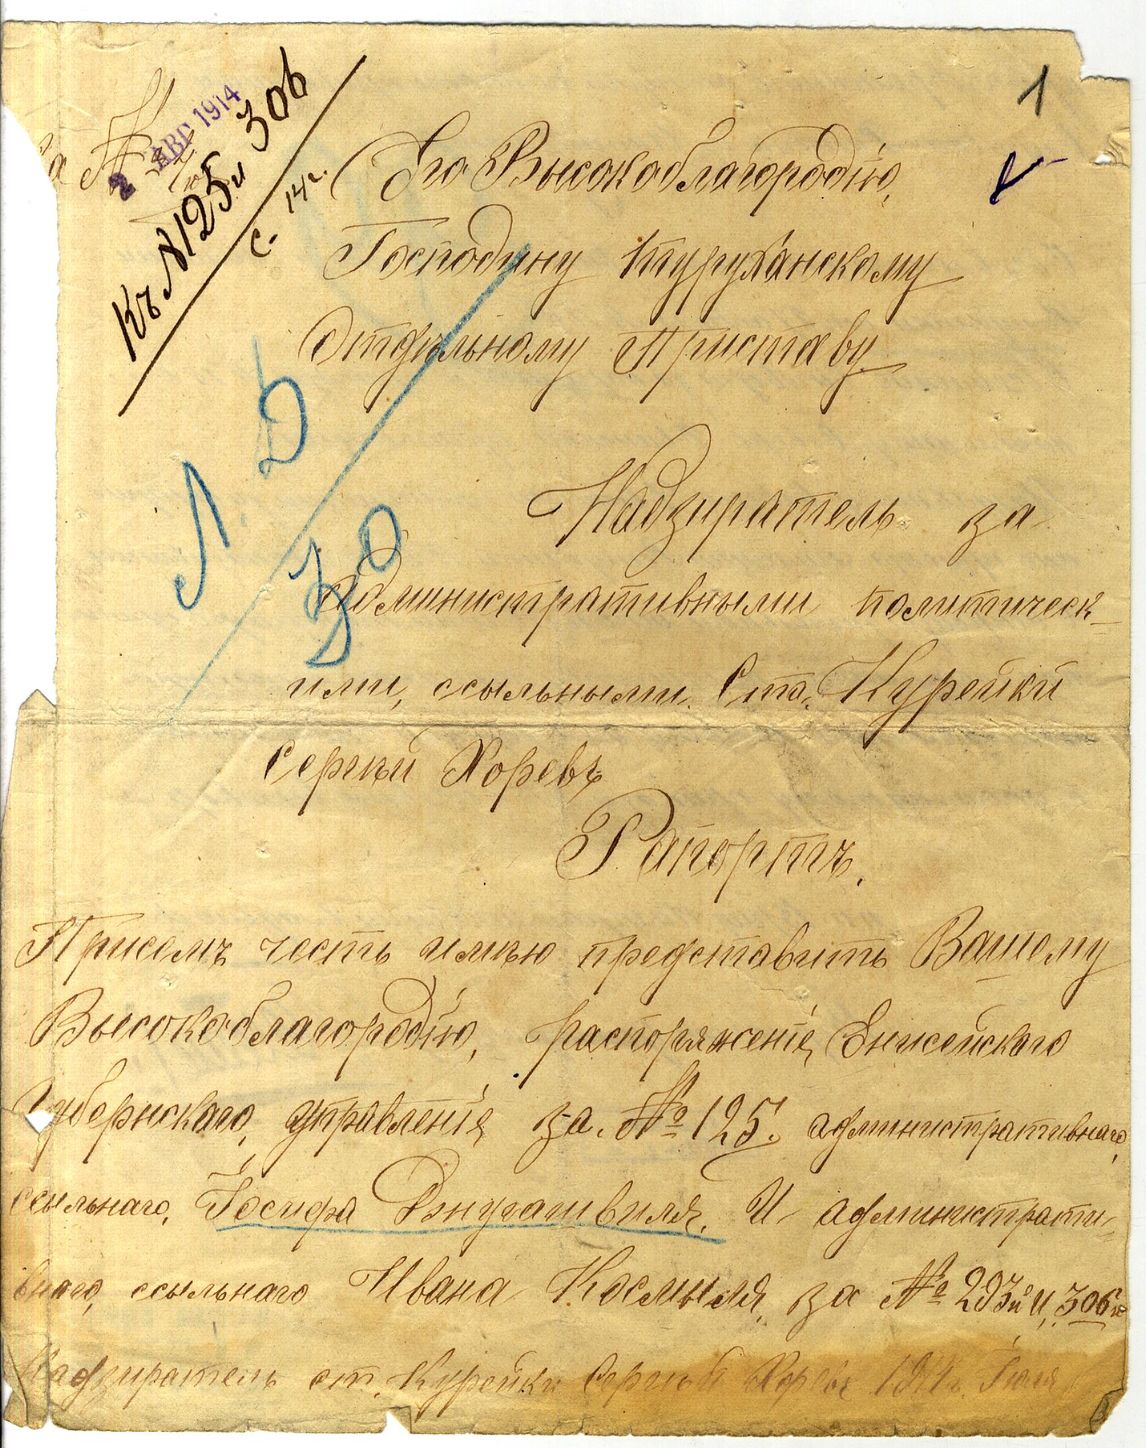 1
2 АВГ 1914
Къ № 125 и 306
с. 14г.
Его Высокоблагородію,
Господину Туруханскому
Отдѣльному Приставу
Л Д
30
Надзиратель за
административными политическ-
ими, ссыльными. Ста. Курейки
Сергѣй Хоревъ
Рапортъ.
Присемъ честь имѣю представить Вашему
Высокоблагородію, распоряженія, Енисейскаго
Губернскаго, управленія, за. № 125. административнаго,
ссыльнаго, Іосифа Джугашвиля. И административ-
внаго, ссыльнаго Ивана Космыля, за № 293й и, 306й
Надзиратель ст. Курейки Сергѣй Хоревъ 1914г. Іюля